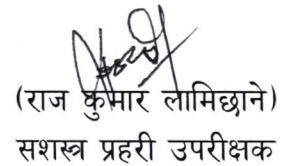 (राज कुमार लामिछाने)
सशस्त्र प्रहरी उपरीक्षक